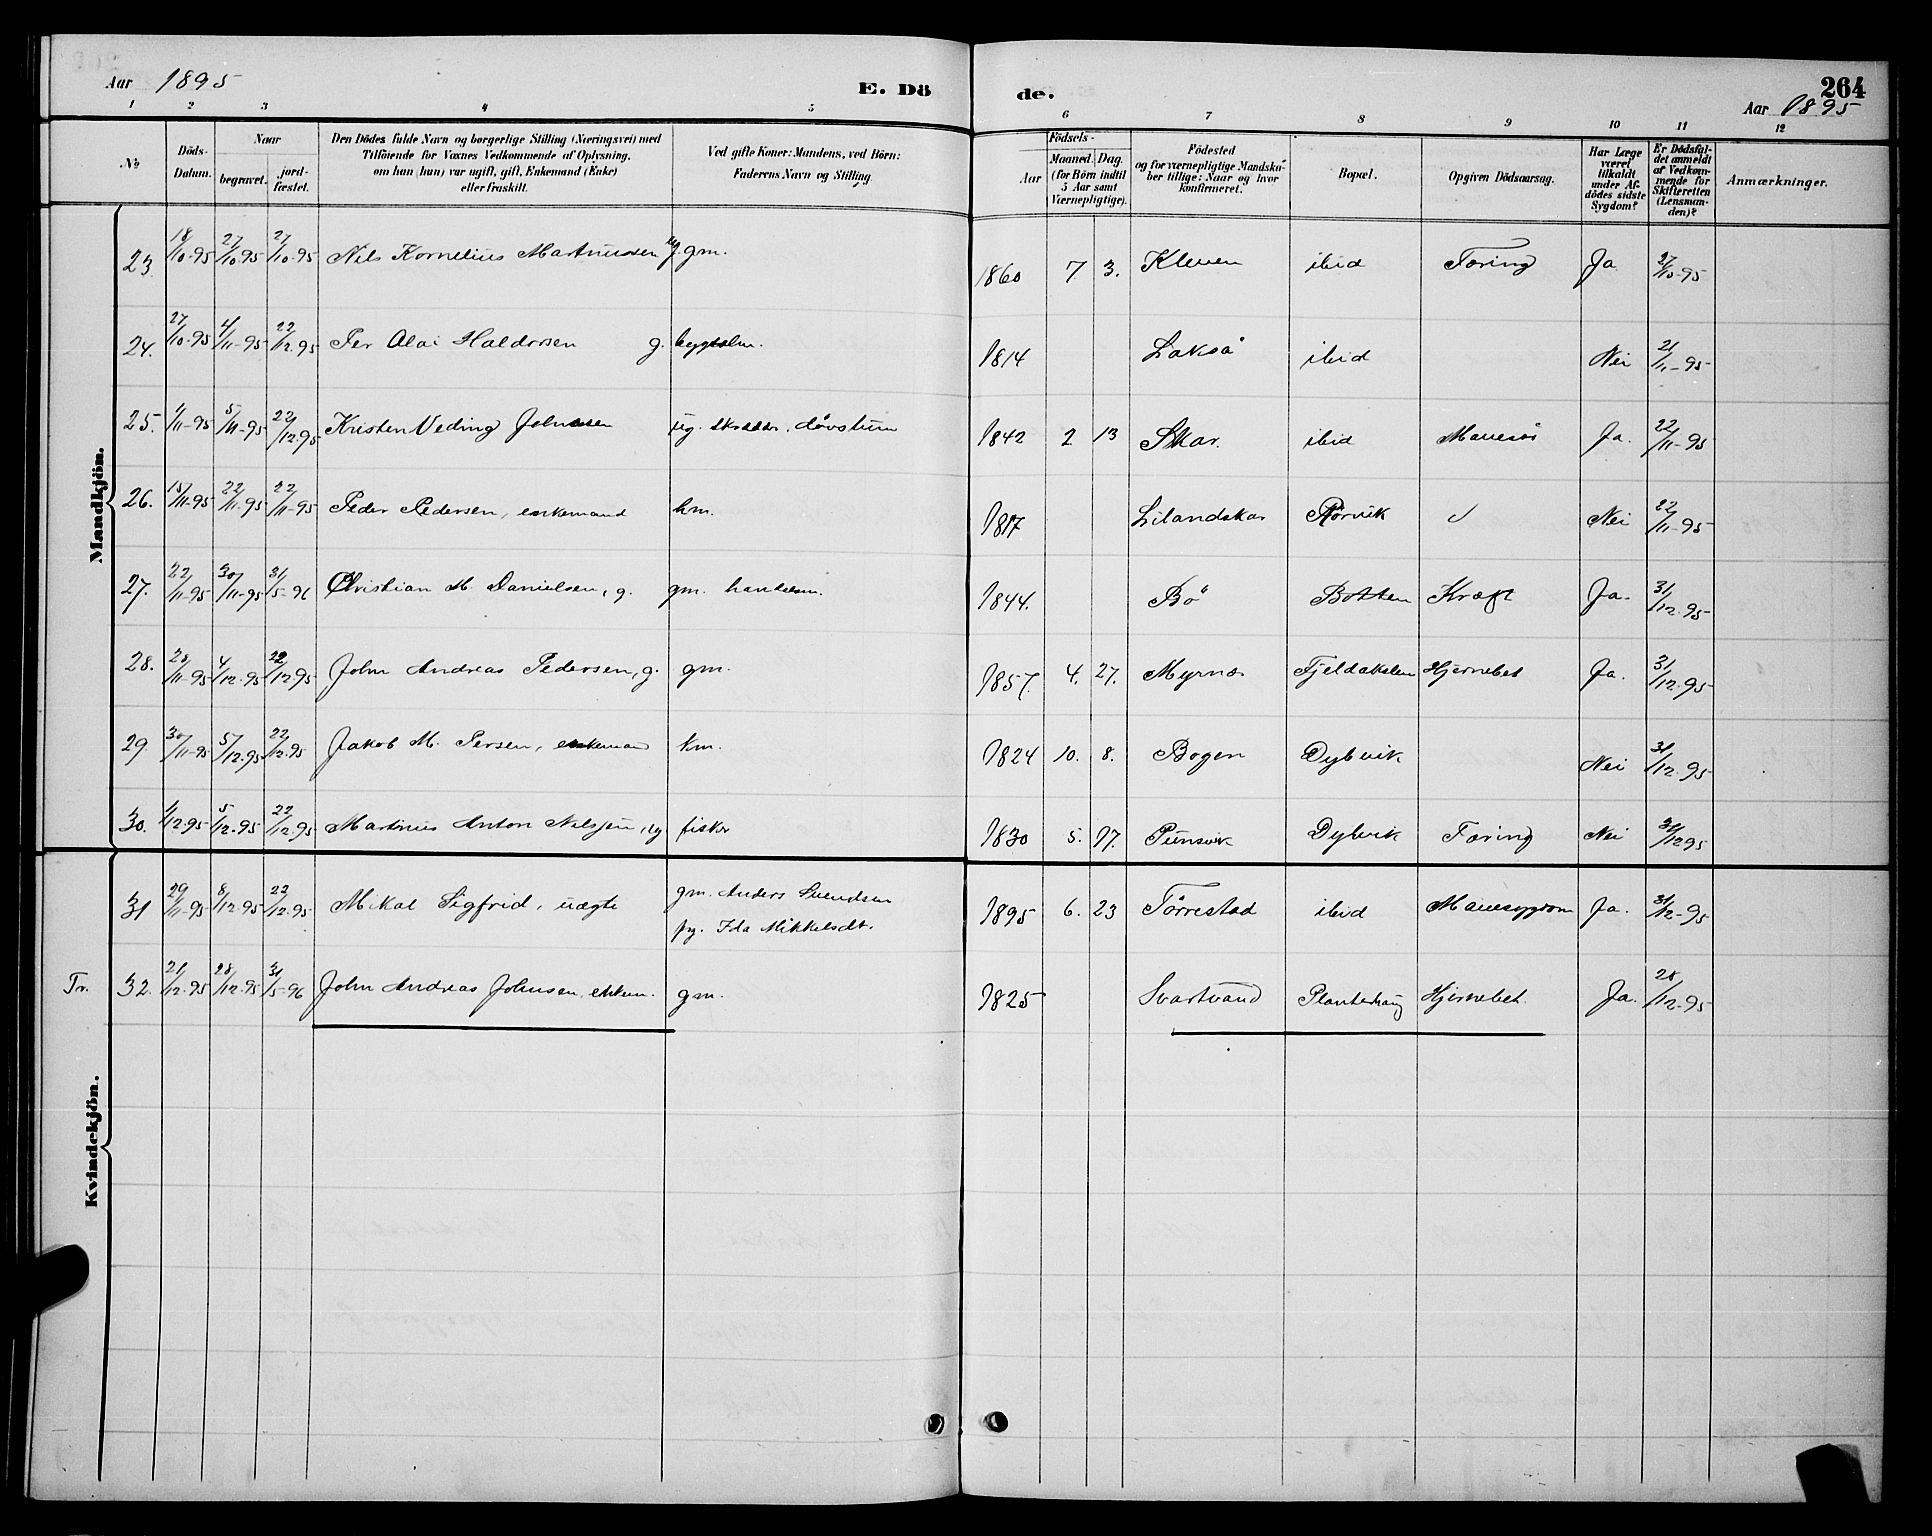 Aar 1895
E. Dö
de.
264
Aar 1895
1 2 3 4 5 6 7 8 9 10 11 12
No
Döds-Datum.
Naar
begravet.
jord-fæstet.
Den Dödes fulde Navn og borgerlige Stilling (Næringsvei) med
Tilföiende for Voxnes Vedkommende af Oplysning,
om han (hun) var ugift, gift, Enkemand (Enke)
eller fraskilt.
Ved gifte Koner: Mandens, ved Börn:
Faderens Navn og Stilling.
Födsels-
Aar
Maaned. Dag.
(for Börn indtil
5 Aar samt
Værnepligtige).
Födested
og for værnepligtige Mandska-
ber tillige: Naar og hvor
konfirmeret.
Bopæl.
Opgiven Dödsaarsag.
Har Læge
været
tilkaldt
under Af-
dödes sidste
Sygdom?
Er Dödsfal-
det anmeldt
af Vedkom-
mende for
Skifteretten
(Lensman-
den)?
Anmærkninger.
Mandkjön.
23. 18/10-95 27/10-95 27/10-95 Nils Kornelius Martinussen ug. gm. 1860 7 3. Kleven ibid Tæring Ja 27/10-95
24. 27/10-95 4/11-95 22/12-95 Per Olai Haldorsen g. 1814 Lakså ibid Nei 21/11-95
25. 1/11-95 5/11-95 22/12-95 Kristen Veding Johnsen ug. skrædder, døvstum 1842 2 13 Skar. ibid Ja. 22/11-95
26. 15/11-95 22/11-95 22/11-95 Peder Pedersen, enkemand km. 1817 Lilandskar Rørvik Nei 22/11-95
27. 22/11-95 30/11-95 31/5-96 Christian M. Danielsen, g. gm. handelsm. 1844. Bö Botten Kræft Ja. 31/12-95
28. 28/11-95 4/12-95 22/12-95 John Andreas Pedersen, g. gm. 1857. 4. 27. Myrnes Fjeldakslen Hjernebet Ja. 31/12-95
29 30/11-95 5/12-95 22/12-95 Jakob M. Persen, enkemand km. 1824 10. 8. Bogen Dybvik Nei 31/12-95
30. 1/12-95 5/12-95 22/12-95 Martinus Anton Nilssen, ug fisker 1830 5. 17. Punsvik Dybvik Tæring Nei 31/12 95
31 29/11-95 8/12-95 22/12-95 Mikal Sigfrid, uægte gm. Anders Svendsen
pg. Ida Mikkelsdt. 1895 6. 23 Tørrestad ibid Mavesygdom Ja. 31/12-95
Tr. 32. 21/12-95 28/12-95 31/5-96 John Andreas Johnsen, enkem. gm. 1825 Svartvand Planterhaug Hjernebet. Ja. 28/12-95
Kvindekjön.